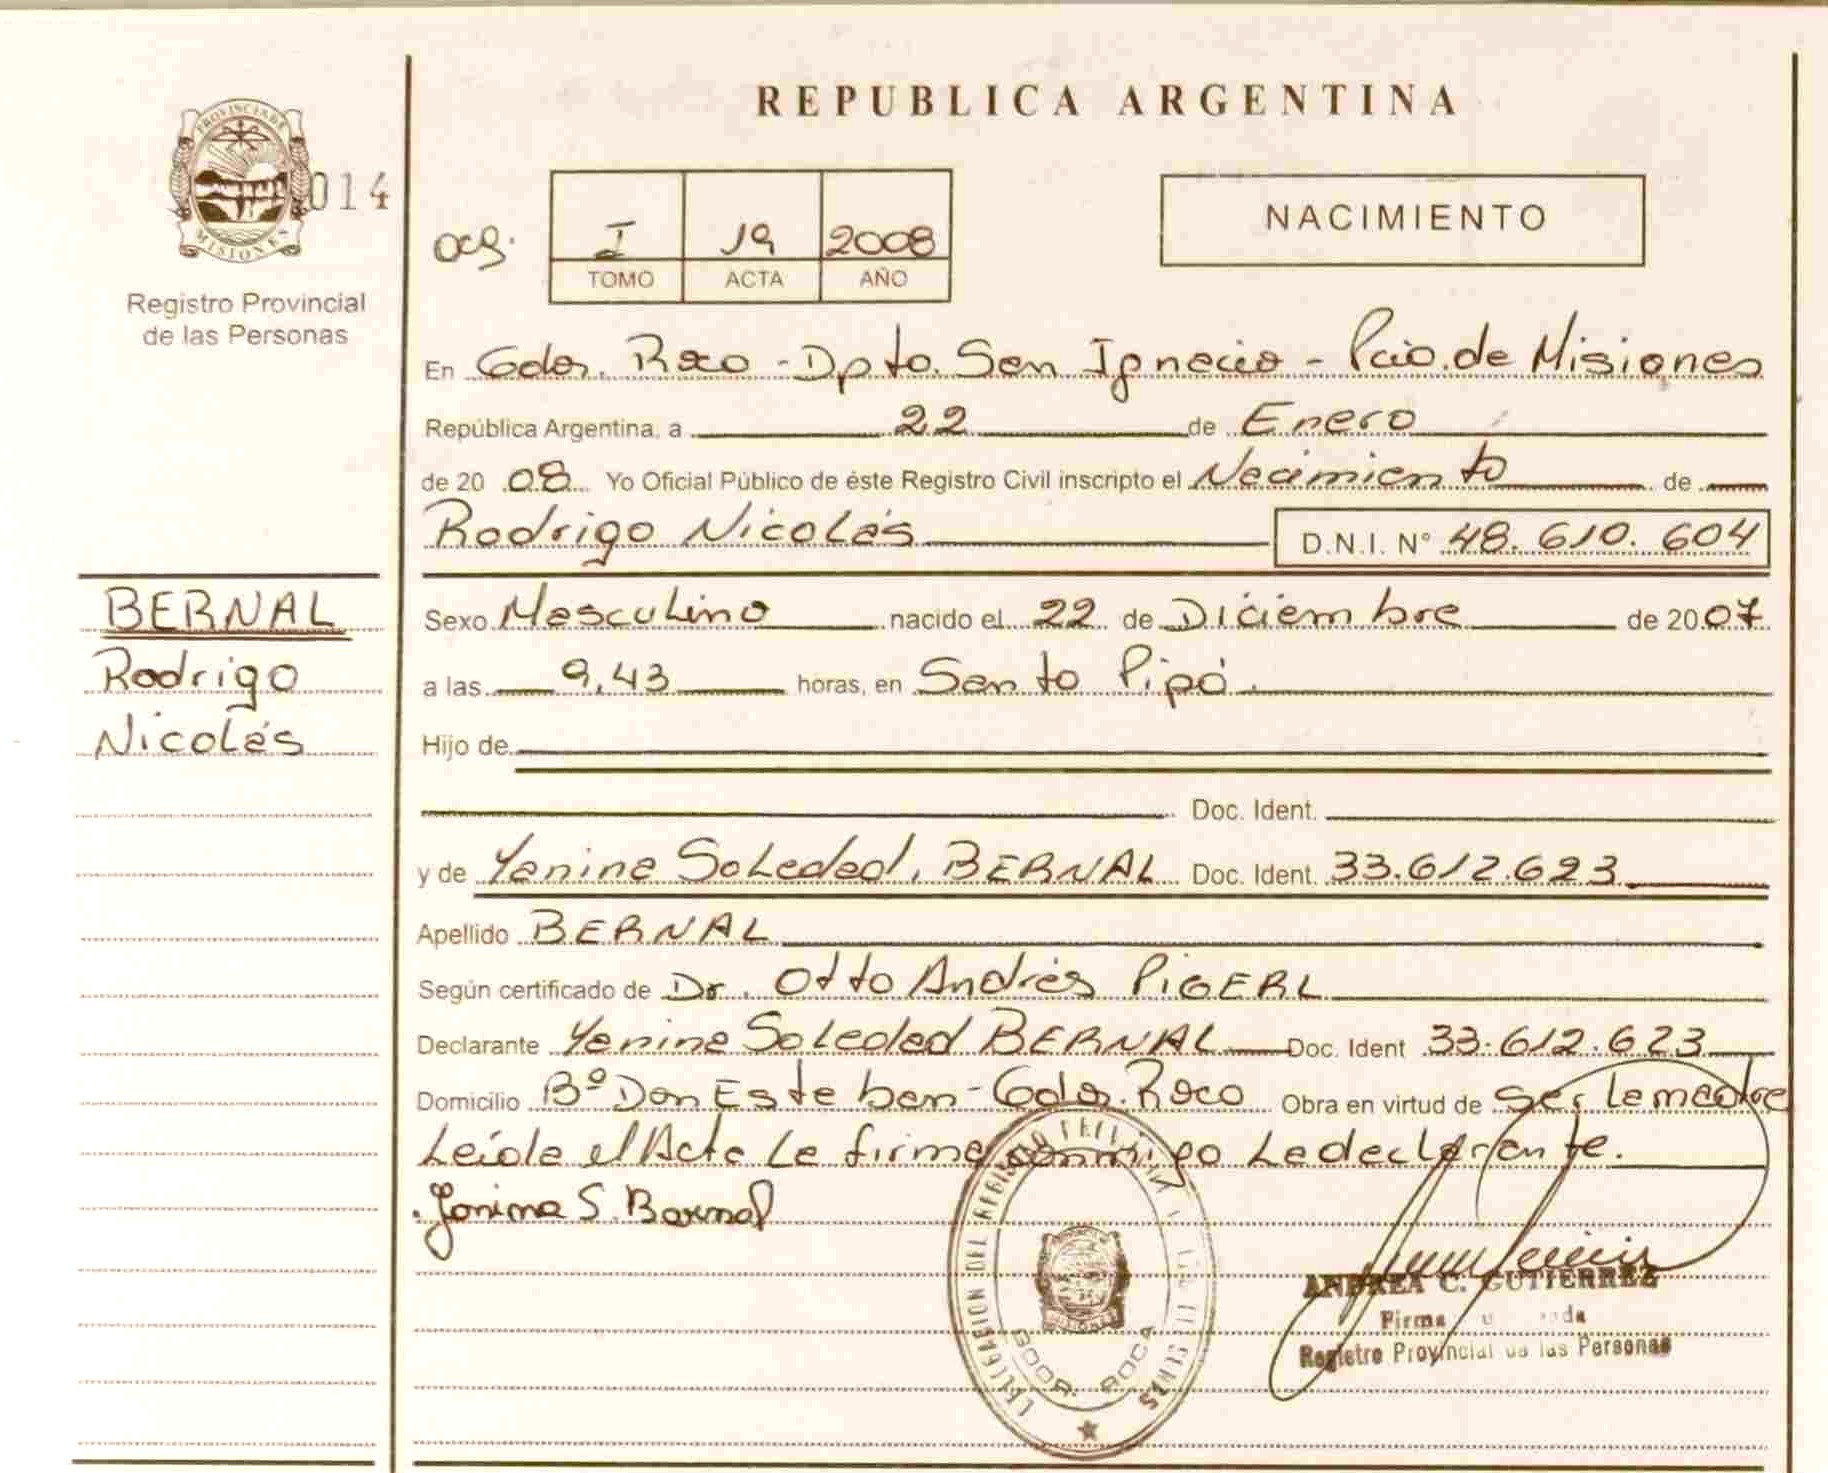 REPUBLICA ARGENTINA
PROVINCIA DE
MISIONES
014
Registro Provincial
de las Personas
I 19 2008
TOMO ACTA AÑO
NACIMIENTO
En Gdor. Roca - Dpto. San Ignacio - Pcia. de Misiones
República Argentina, a 22 de Enero
de 20 08 Yo Oficial Público de éste Registro Civil inscripto el Nacimiento de
Rodrigo Nicolás D.N.I. N° 48.610.604
BERNAL
Rodrigo
Nicolás
Sexo Masculino nacido el 22 de Diciembre de 2007
a las 9,43 horas, en Santo Pipó.
Hijo de
Doc. Ident.
y de Yanina Soledad, BERNAL Doc. Ident. 33.612.623
Apellido BERNAL
Según certificado de Dr. Otto Andrés PIGERL
Declarante Yanina Soledad BERNAL Doc. Ident 33.612.623
Domicilio Bº Don Esteban - Gdor. Roca Obra en virtud de ser la madre
Leída el Acta la firma conmigo La declarante.
Yanina S. Bernal
GDOR. ROCA
ANDREA C. GUTIERREZ
Firma
Registro Provincial de las Personas